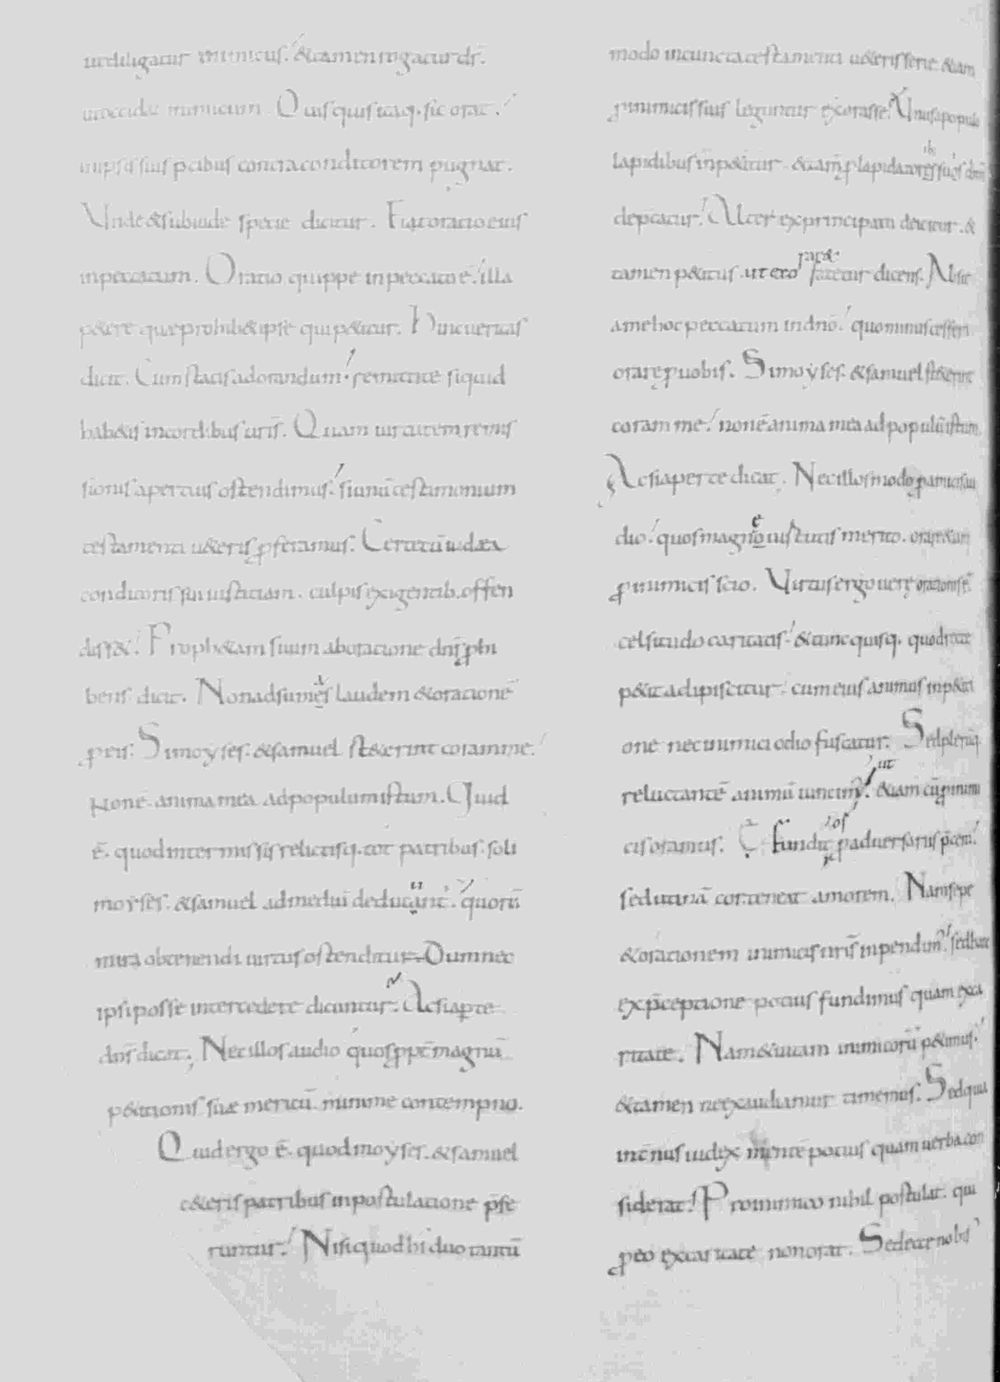 ut diligatur inimicus. & tamen rogatur dn̄s.
ut occidat inimicum. Quisquis itaq· sic orat.
in ipsis suis p̄cibus contra conditorem pugnat.
Unde & sub iude specie dicitur. Fiat oratio eius
in peccatum. Oratio quippe in peccatū ē. illa
p&ere quæ prohib& ipse qui p&itur. Hinc ueritas
dicit. Cum statis ad orandum. remittite siquid
hab&is in cordibus uris. Quam uirtutem remis
sionis apertius ostendimus. si unū testimonium
testamenti u&eris ꝓferamus. Certe cū iudæa
conditoris sui iustitiam. culpis exigentib. offen
diss&. Proph&am suum ab oratione dn̄s ꝓhi
bens dicit. Non adsumes laudem & orationē
ꝓ eis. Si moyses. & samuel st&erint coram me.
non ē anima mea ad populum istum. Quid
ē. quod intermissis relictisq. tot patribus. soli
moyses. & samuel ad mediū deducunt. quorū
mira obtinendi uirtus ostenditur. Dum nec
ipsi posse intercedere dicuntur. Ac si aꝑte
dn̄s dicat. Nec illos audio quos ꝓpt̄ magnū
p&itionis suæ meritū. minime contempno.
Quid ergo ē. quod moyses. & samuel
c&eris patribus in postulatione p̄fe
runtur. Nisi quod hi duo tantū
modo in cuncta testamenti u&eris serie. &iam
ꝓ inimicis suis leguntur exorasse. Unus a populo
lapidibus inp&itur. & tam̄ ꝓ lapidatoribus suis dn̄m
dep̄catur. Alter ex principatu deicitur. &
tamen p&itus ut ex&o& fatetur dicens. Absit
a me hoc peccatum in dn̄o. quo minus cessem
orare ꝓ uobis. Si moyses. & samuel st&erint
coram me. non ē anima mea ad populū istum.
Ac si aperte dicat. Nec illos modo ꝓ amicis au
dio. quos magne iustitiæ merito. orare &iam
ꝓ inimicis scio. Virtus ergo uerę orationis ē.
celsitudo caritatis. & tunc quisq. quod recte
p&it adipiscitur. cum eius animus in p&iti
one nec inimici odio fuscatur. Sed plerūq
reluctantē animū uincim᾽. ut &iam cū ꝓ inimi
cis oramus. fundit os ꝓ aduersariis p̄cem.
sed utinā cor teneat amorem. Nam sepe
& orationem inimicis nr̄is inpendim᾽. sed hanc
ex p̄ceptione potius fundimus quam ex ca
ritate. Nam & uitam inimicorū p&imus.
& tamen ne exaudiamur timemus. Sed quia
int̄nus iudex mente potius quam uerba con
siderat. Pro inimico nihil postulat. qui
ꝓ eo ex caritate non orat. Sed ecce nobis